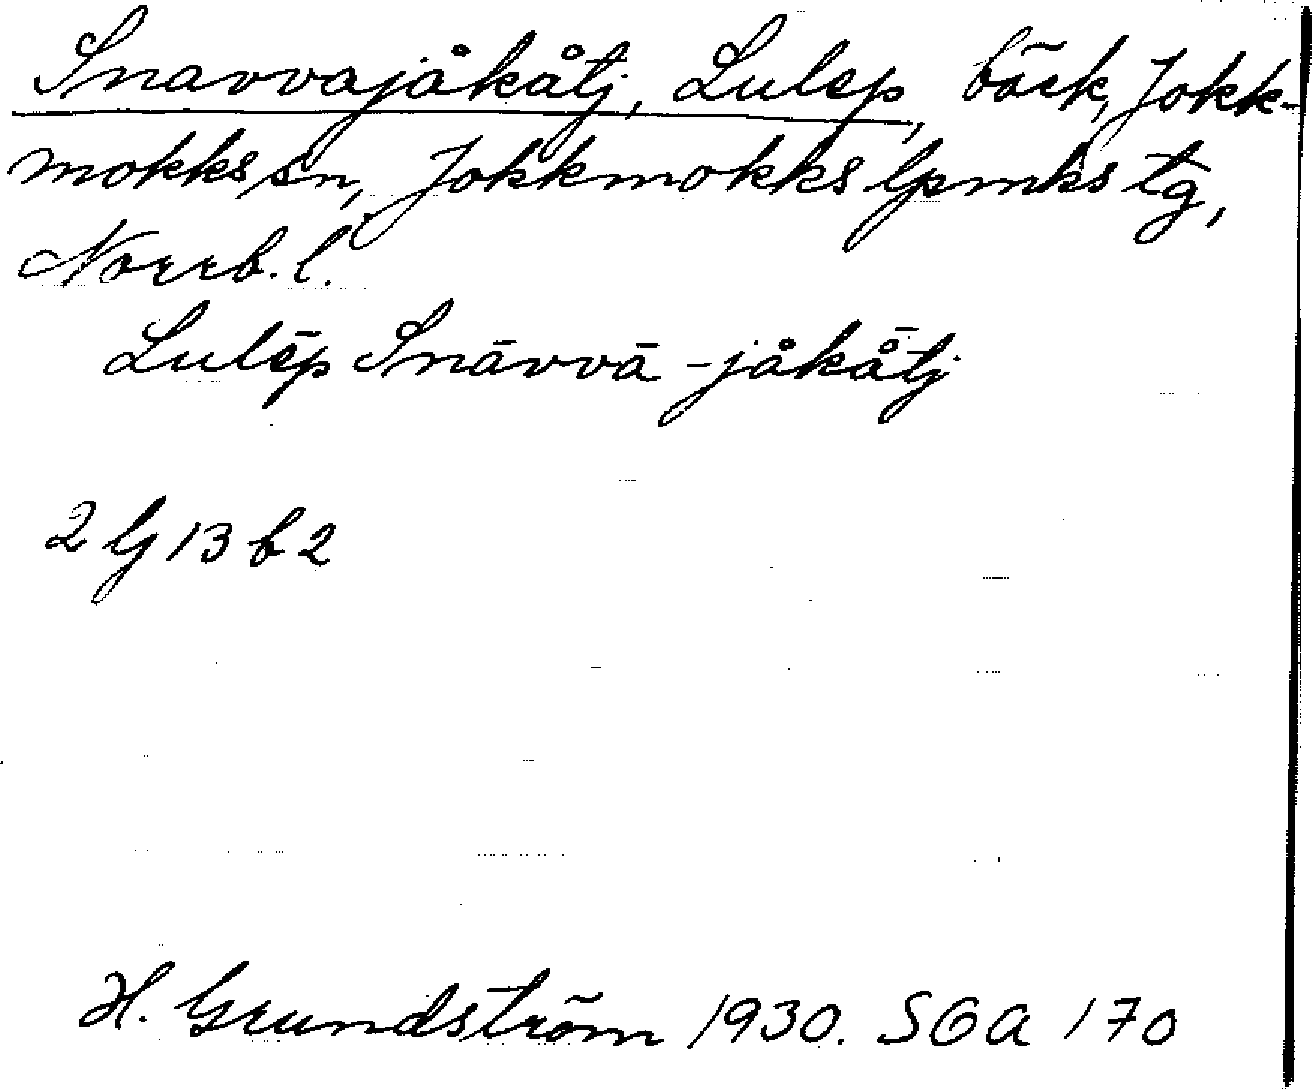 Snavvajåkåtj, Lulep, bäck, Jokk-
mokks sn, Jokkmokks lpmks tg,
Norrb. l.
Lulēp Snāvvā-jåkå̄tj
2 G 13 b 2
H. Grundström 1930. SOA 170